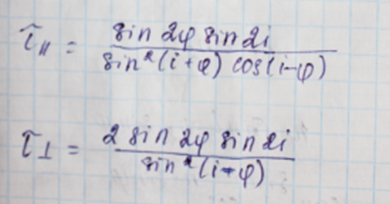 τ₁₁ = sin 2φ sin 2i / sin²(i+φ) cos(i-φ)
τ⊥ = 2 sin 2φ sin 2i / sin²(i-φ)